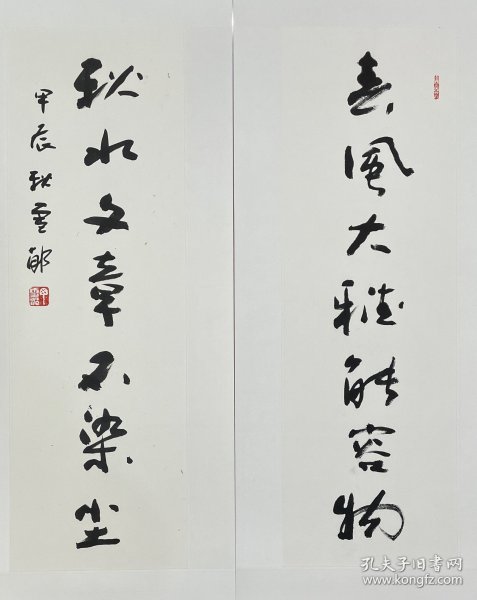 春风大雅能容物
秋水文章不染尘
甲辰秋雪邨
孔夫子旧书网
www.kongfz.com